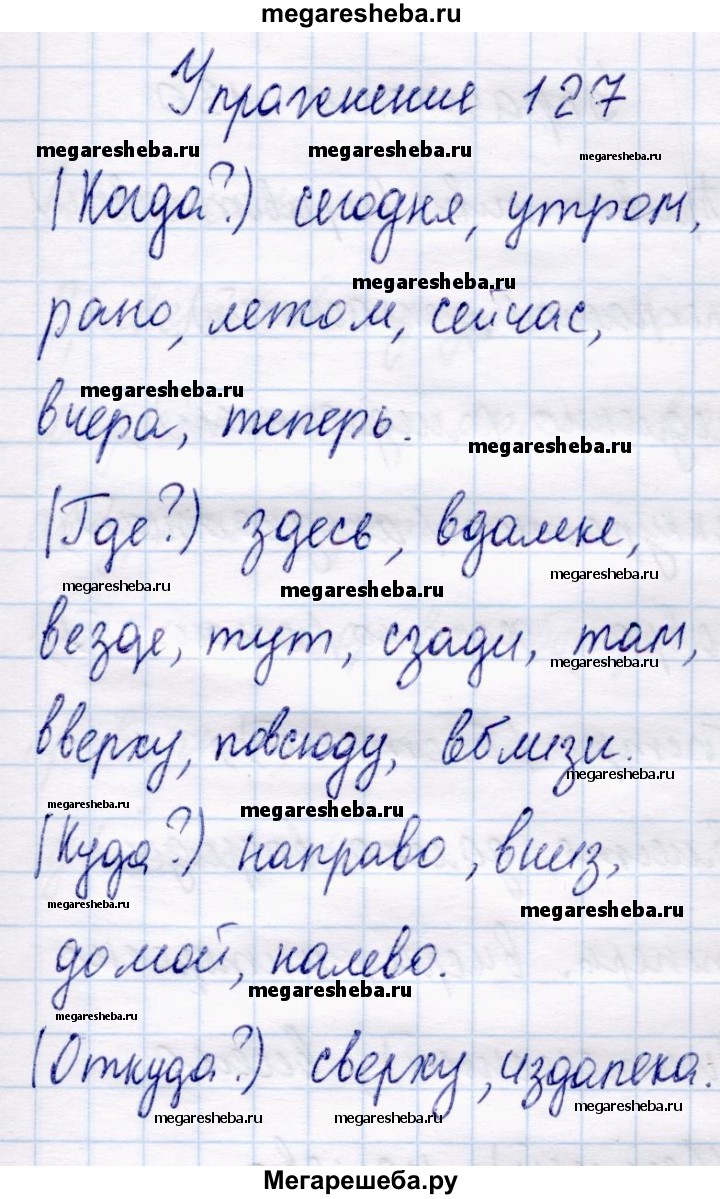 megaresheba.ru
Упражнение 127
megaresheba.ru megaresheba.ru megaresheba.ru
(Когда?) сегодня, утром,
megaresheba.ru
рано, летом, сейчас,
megaresheba.ru
вчера, теперь.
megaresheba.ru
(Где?) здесь, вдалеке,
megaresheba.ru megaresheba.ru megaresheba.ru
везде, тут, сзади, там,
megaresheba.ru
megaresheba.ru megaresheba.ru
вверху, повсюду, вблизи.
megaresheba.ru
megaresheba.ru megaresheba.ru
(Куда?) направо, вниз,
megaresheba.ru megaresheba.ru
домой, налево.
megaresheba.ru
megaresheba.ru
(Откуда?) сверху, издалека.
megaresheba.ru megaresheba.ru megaresheba.ru
Мегарешеба.ру